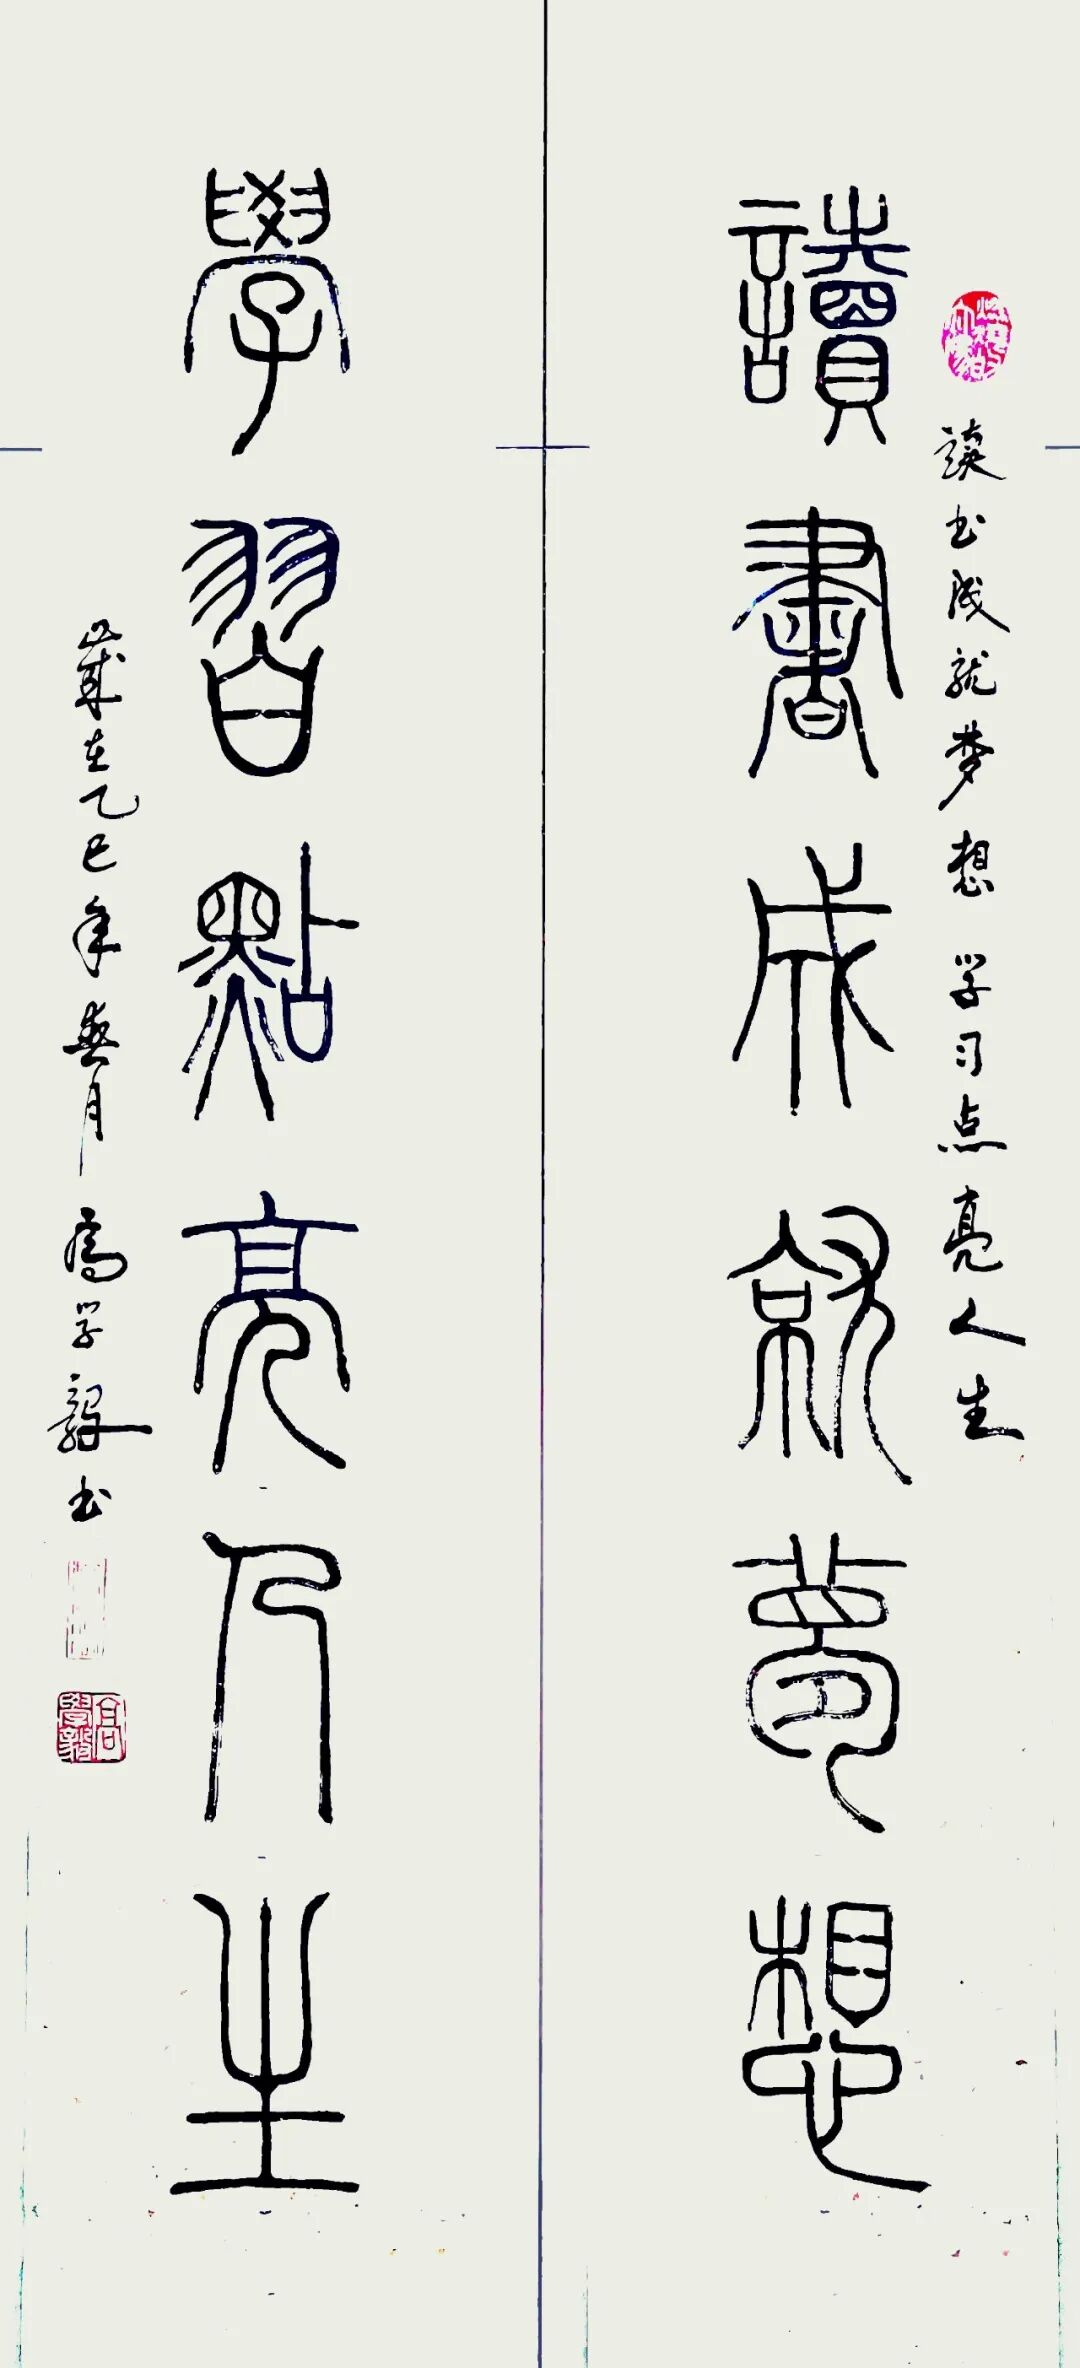 读书成就梦想 学习点亮人生
讀書成就夢想
學習點亮人生
歲在乙巳年春月 高学毅书
高學毅